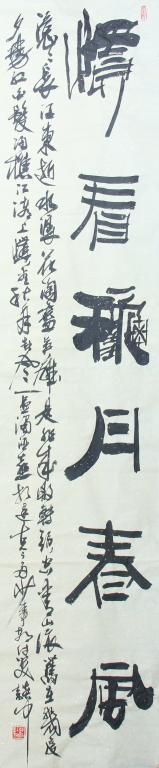 慣看龝月春風
滾〻長江東逝水浪花淘盡英雄是非成敗轉頭空青山依舊在幾度
夕陽紅白髮漁樵江渚上慣看秋月春風一壺濁酒喜相逢古今多少事都付笑談中